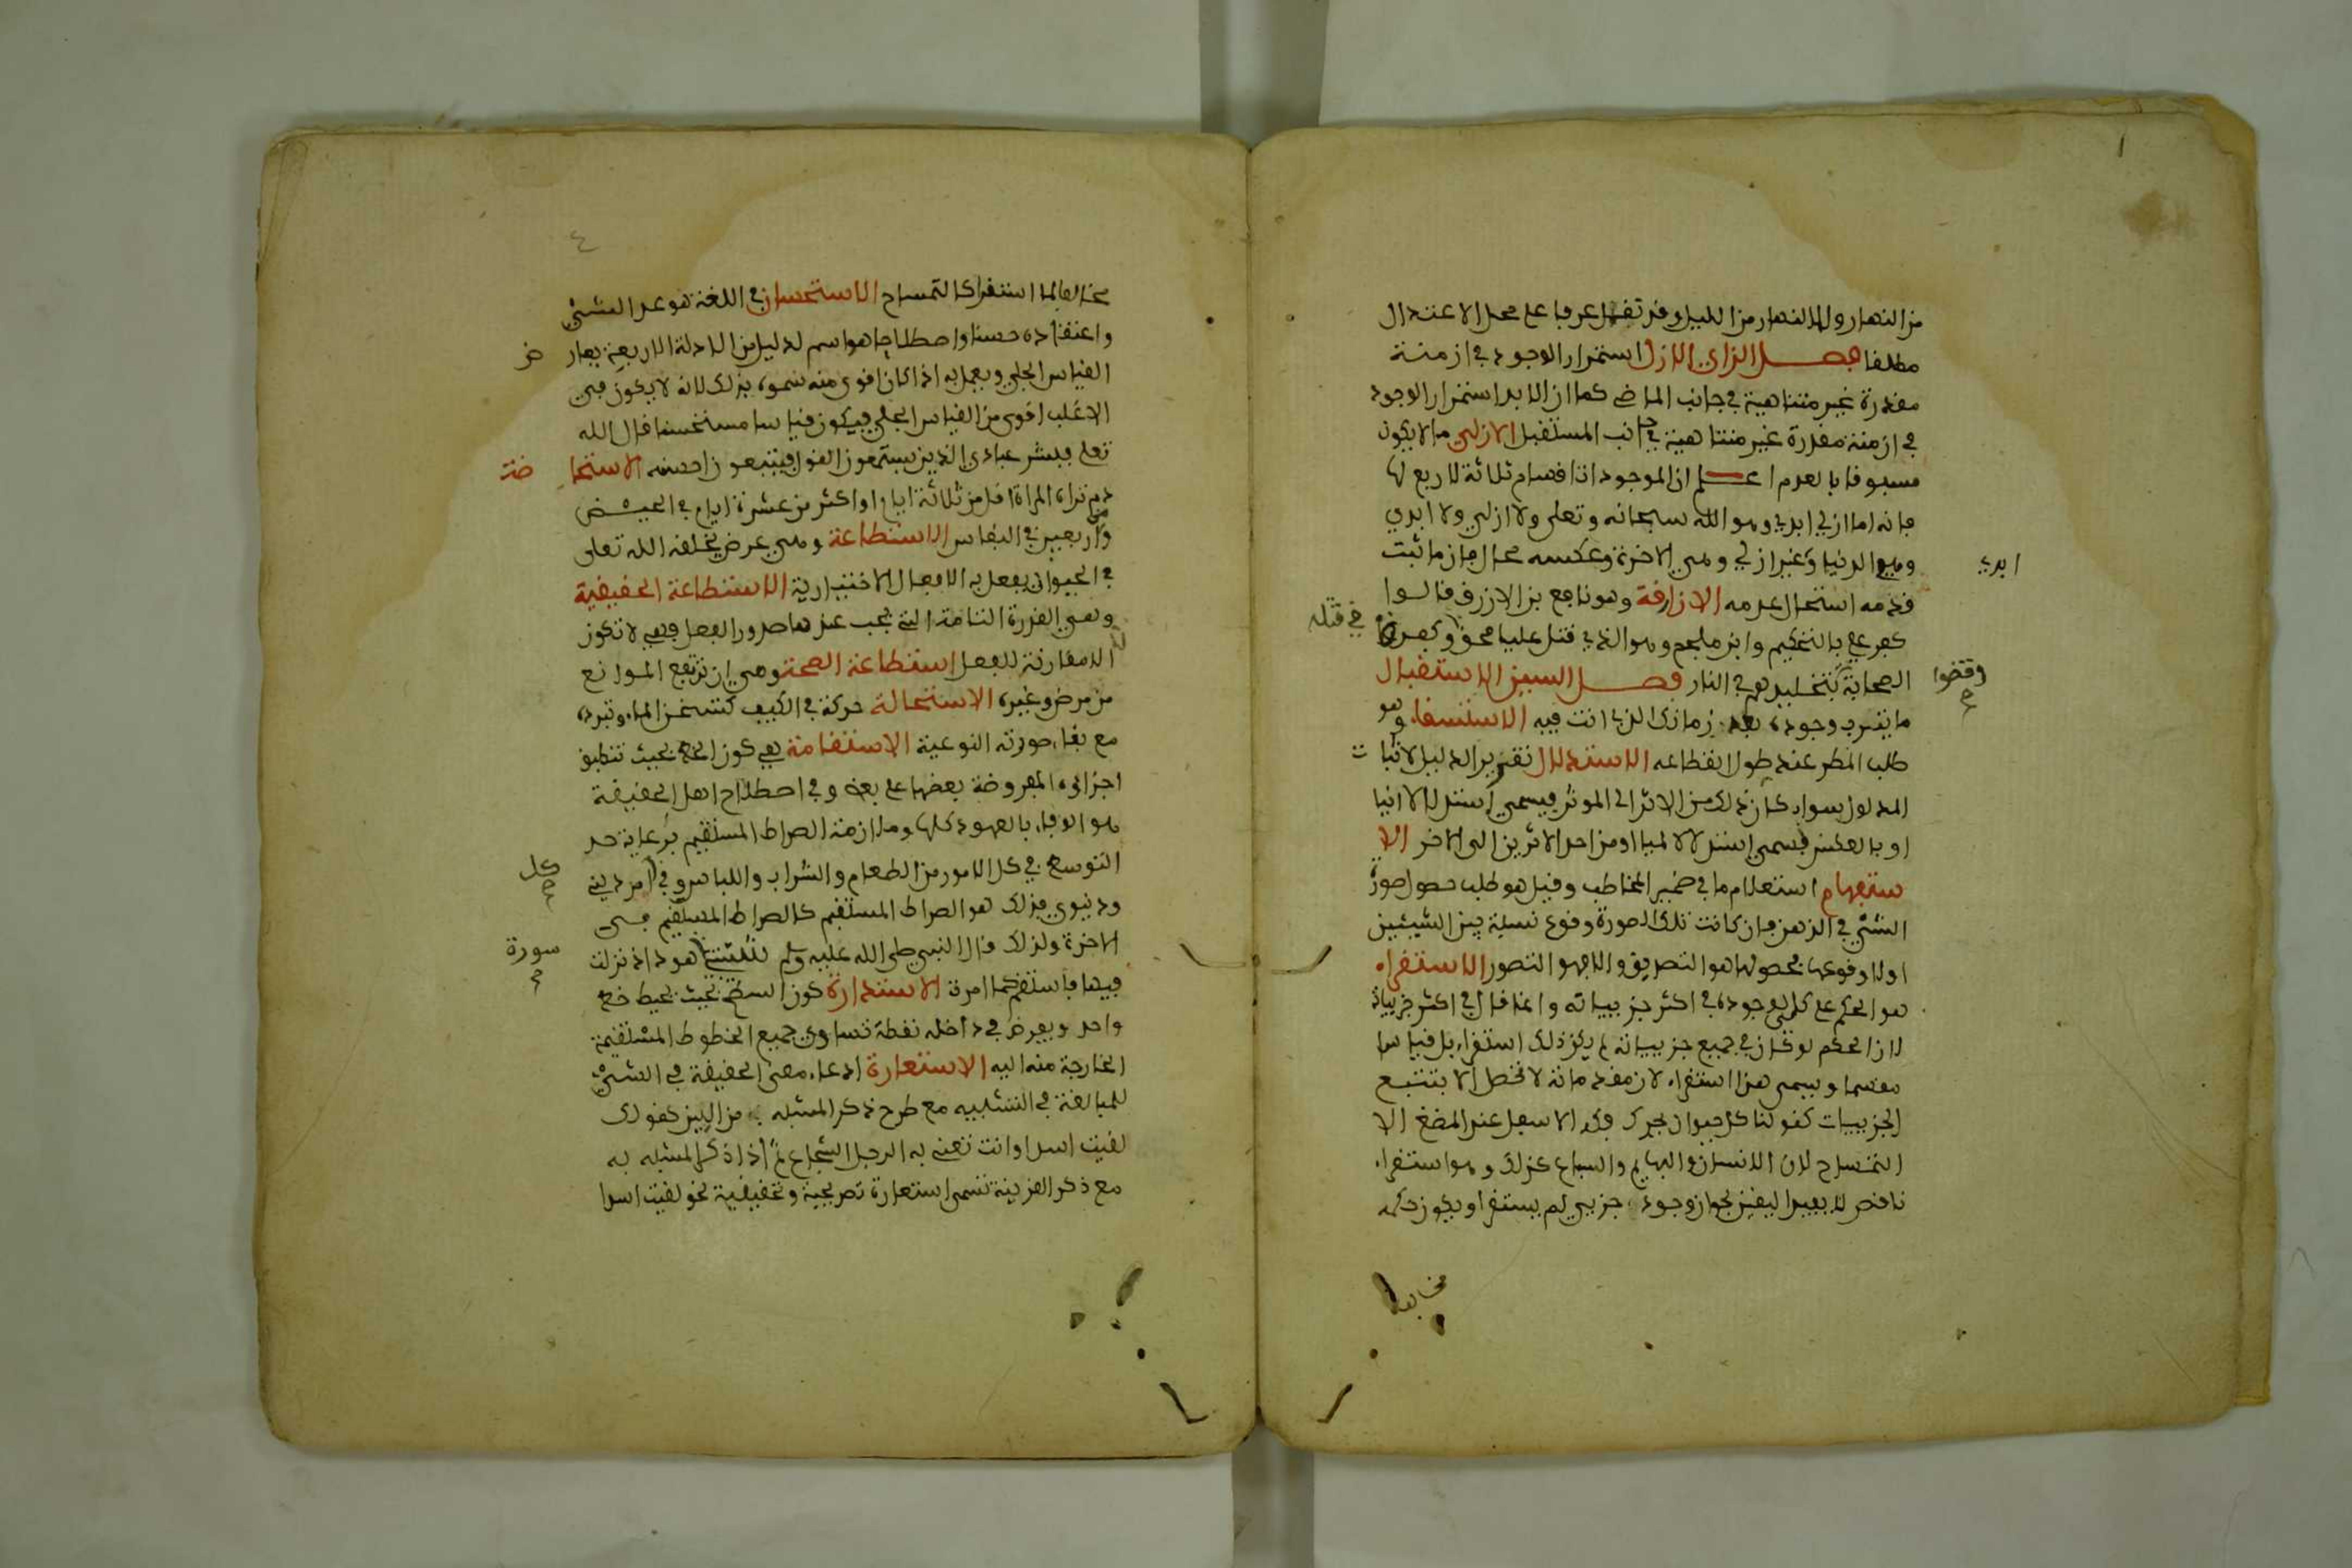 من النهار ولا النهار من الليل وقد تفهل عرفا على محل الاعتدال
مطلقا فصل الزاي الازل استمرار الوجود في ازمنة
مقدرة غير متناهية في جانب الماضي كما ان الابد استمرار الوجود
في ازمنة مقدرة غير متناهية في جانب المستقبل الازلي ما لا يكون
مسبوقا بالعدم اعلم ان الموجود اقسام ثلاثة لا رابع لها
فانه اما ازلي ابدي وهو الله سبحانه وتعلى ولا ازلي ولا ابدي
وهو الدنيا وغير ازلي وهي الاخرة وعكسه محال فان ما ثبت
ابدي
قدمه استحال عدمه الازارقة وهو نافع بن الازرق قالوا
كفر علي بالتحكيم وابن ملجم وهو الذي قتل عليا محق وكفرت
في قتله
الصحابة بتخليدهم في النار فصل السين الاستقبال
وقضوا
ما يترب وجوده بعد زمانك الذي انت فيه الاستسقاء وهو
طلب المطر عند طول انقطاعه الاستدلال تقرير الدليل لاثبات
المدلول سواء كان ذلك من الاثر الى الموثر فيسمى استدلالا انيا
او بالعكس فيسمى استدلالا لميا او من احد الاثرين الى الاخر الا
ستفهام استعلام ما في ضمير المخاطب وقيل هو طلب حصول صورة
الشيء في الذهن فان كانت تلك الصورة وقوع نسبة بين الشيئين
اولا وقوعها فحصولها هو التصديق والا فهو التصور الاستقراء
هو الحكم على كلي لوجوده في اكثر جزيياته وانما قال في اكثر جزيياته
لان الحكم لو كان في جميع جزيياته لم يكن ذلك استقراء بل قياسا
مقسما ويسمى هذا استقراء لان مقدماته لا تحصل الا بتتبع
الجزييات كقولنا كل حيوان يحرك فكه الاسفل عند المضغ الا
التمساح لان الانسان والبهايم والسباع كذلك وهو استقراء
ناقص لا يفيد اليقين لجواز وجود جزيي لم يستقرا ويكون حكمه
مخالفا
٤
مخالفا لما استقرا كالتمساح الاستحسان في اللغة هو عد الشيء
واعتقاده حسنا واصطلاحا هو اسم لدليل من الادلة الاربعة يعارض
القياس الجلي ويعمل به اذا كان اقوى منه سموه بذلك لانه لا يكون في
الاغلب اقوى من القياس الجلي فيكون قياسا مستحسنا قال الله
تعلى فبشر عبادي الذين يستمعون القول فيتبعون احسنه الاستحاضة
دم تراه المراة اقل من ثلاثة ايام او اكثر من عشرة ايام في الحيض
واربعين في النفاس الاستطاعة وهي عرض يخلقه الله تعلى
في الحيوان يفعل به الافعال الاختيارية الاستطاعة الحقيقية
وهي القدرة التامة التي يجب عندها صدور الفعل فهي لا تكون
الا مقارنة للفعل استطاعة الصحة وهي ان ترتفع الموانع
من مرض وغيره الاستحالة حركة في الكيف كتسخن الماء وتبرده
مع بقاء صورته النوعية الاستقامة هي كون الخط بحيث تنطبق
اجزاؤه المفروضة بعضها على بعض وفي اصطلاح اهل الحقيقة
هو الوفاء بالعهود كلها وملازمة الصراط المستقيم برعاية حد
التوسط في كل الامور من الطعام والشراب واللباس وفي امر ديني
كل
ودنيوي فذلك هو الصراط المستقيم كالصراط المستقيم في
الاخرة ولذلك قال النبي صلى الله عليه وسلم شيبتني هود اذ نزلت
سورة
فيها فاستقم كما امرت الاستدارة كون السطح بحيث يحيط خط
واحد ويفرض في داخله نقطة تساوي جميع الخطوط المستقيمة
الخارجة منه اليه الاستعارة ادعاء معنى الحقيقة في الشيء
للمبالغة في التشبيه مع طرح ذكر المشبه من البين كقولك
لقيت اسدا وانت تعني به الرجل الشجاع ثم اذا ذكر المشبه به
مع ذكر القرينة تسمى استعارة تصريحية وتحقيقية نحو لقيت اسدا